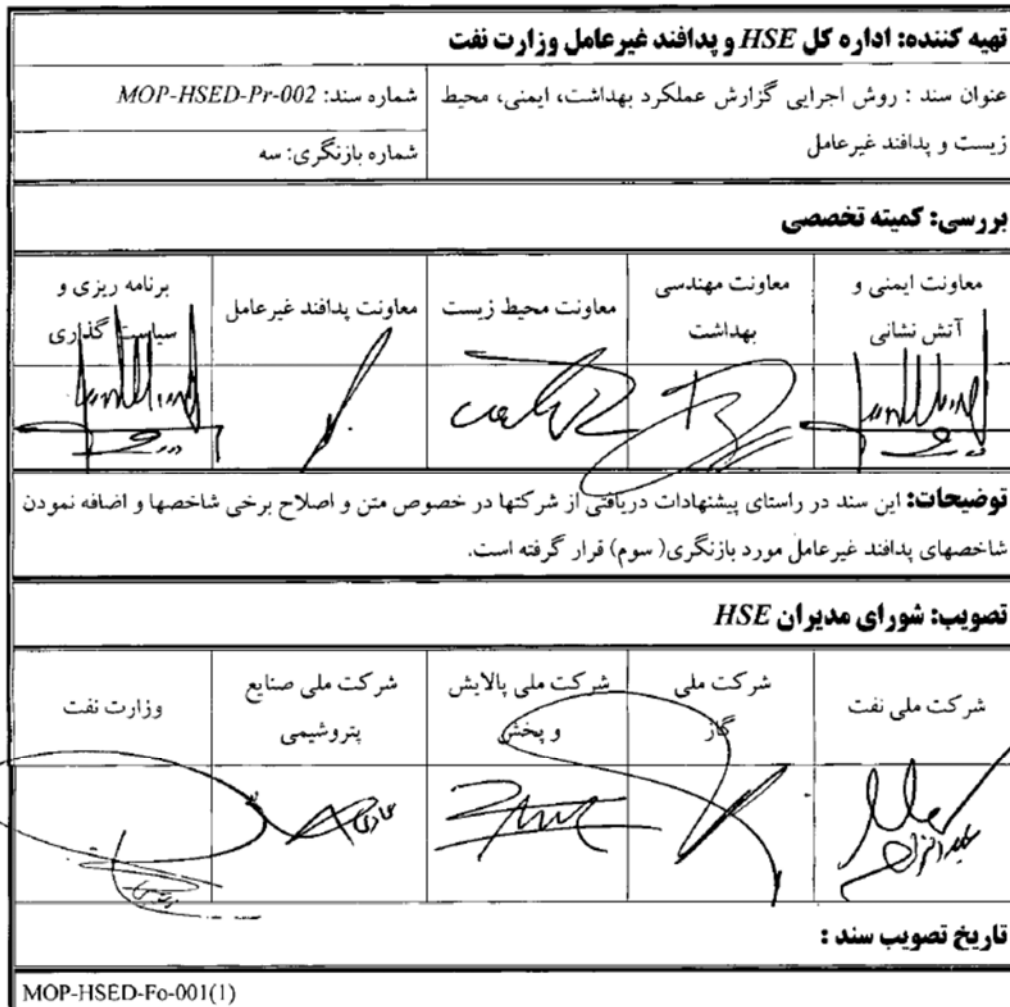 تهیه کننده: اداره کل HSE و پدافند غیرعامل وزارت نفت
عنوان سند : روش اجرایی گزارش عملکرد بهداشت، ایمنی، محیط
زیست و پدافند غیرعامل
شماره سند: MOP-HSED-Pr-002
شماره بازنگری: سه
بررسی: کمیته تخصصی
معاونت ایمنی و
آتش نشانی
معاونت مهندسی
بهداشت
معاونت محیط زیست
معاونت پدافند غیرعامل
برنامه ریزی و
سیاست گذاری
توضیحات: این سند در راستای پیشنهادات دریافتی از شرکتها در خصوص متن و اصلاح برخی شاخصها و اضافه نمودن
شاخصهای پدافند غیرعامل مورد بازنگری( سوم) قرار گرفته است.
تصویب: شورای مدیران HSE
شرکت ملی نفت
شرکت ملی
گاز
شرکت ملی پالایش
و پخش
شرکت ملی صنایع
پتروشیمی
وزارت نفت
تاریخ تصویب سند :
MOP-HSED-Fo-001(1)